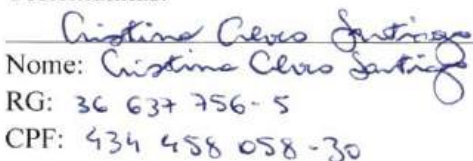 Cristina Alves Santiago
Nome: Cristina Alves Santiago
RG: 36 637 756-5
CPF: 434 458 058-30